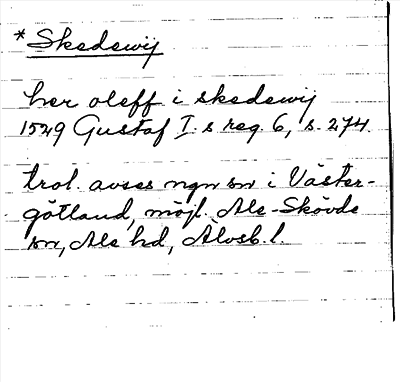 * Skedewij
her oleff i skedewij
1529 Gustaf I:s reg. 6, s. 274.
trol. avses ngn sn i Väster-
götland, möjl. Ale-Skövde
sn, Ale hd, Älvsb. l.